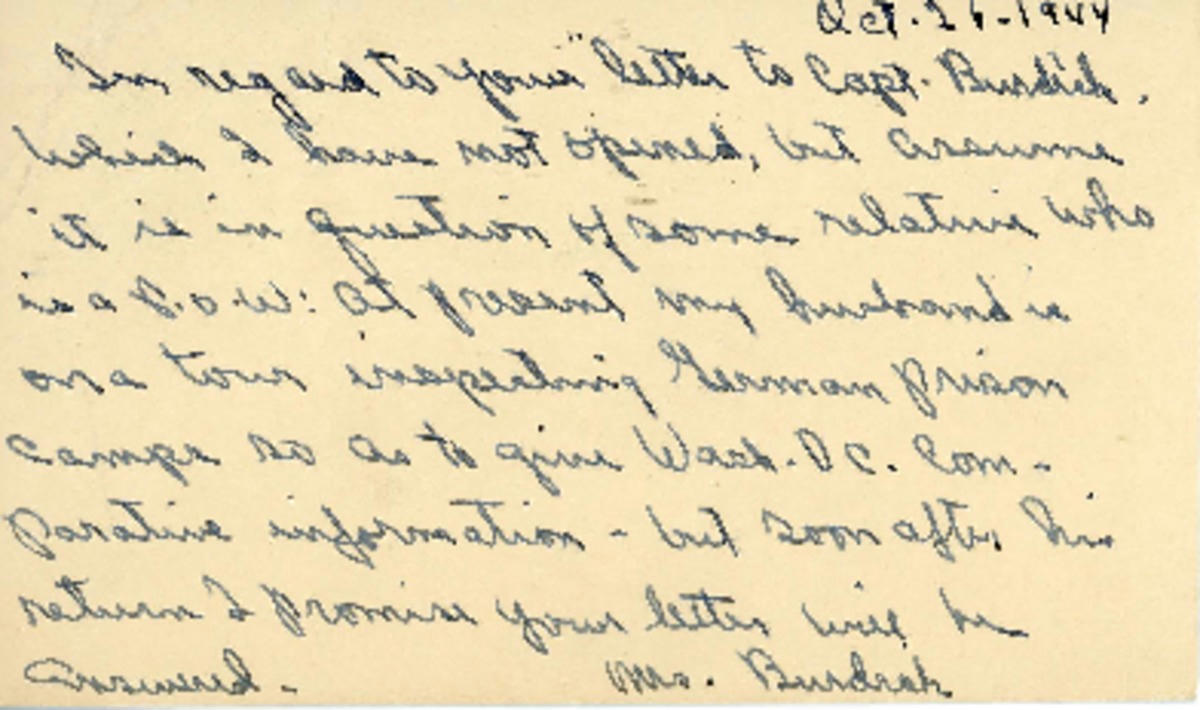 Oct. 26-1944
In regard to your letter to Capt. Burdick.
Which I have not opened, but assume
it is in question of some relative who
is a P.O.W: At present my husband is
on a tour inspecting German prison
camps so as to give Wash. D.C. Com-
parative information - but soon after his
return I promise your letter will be
answered.- Mrs. Burdick